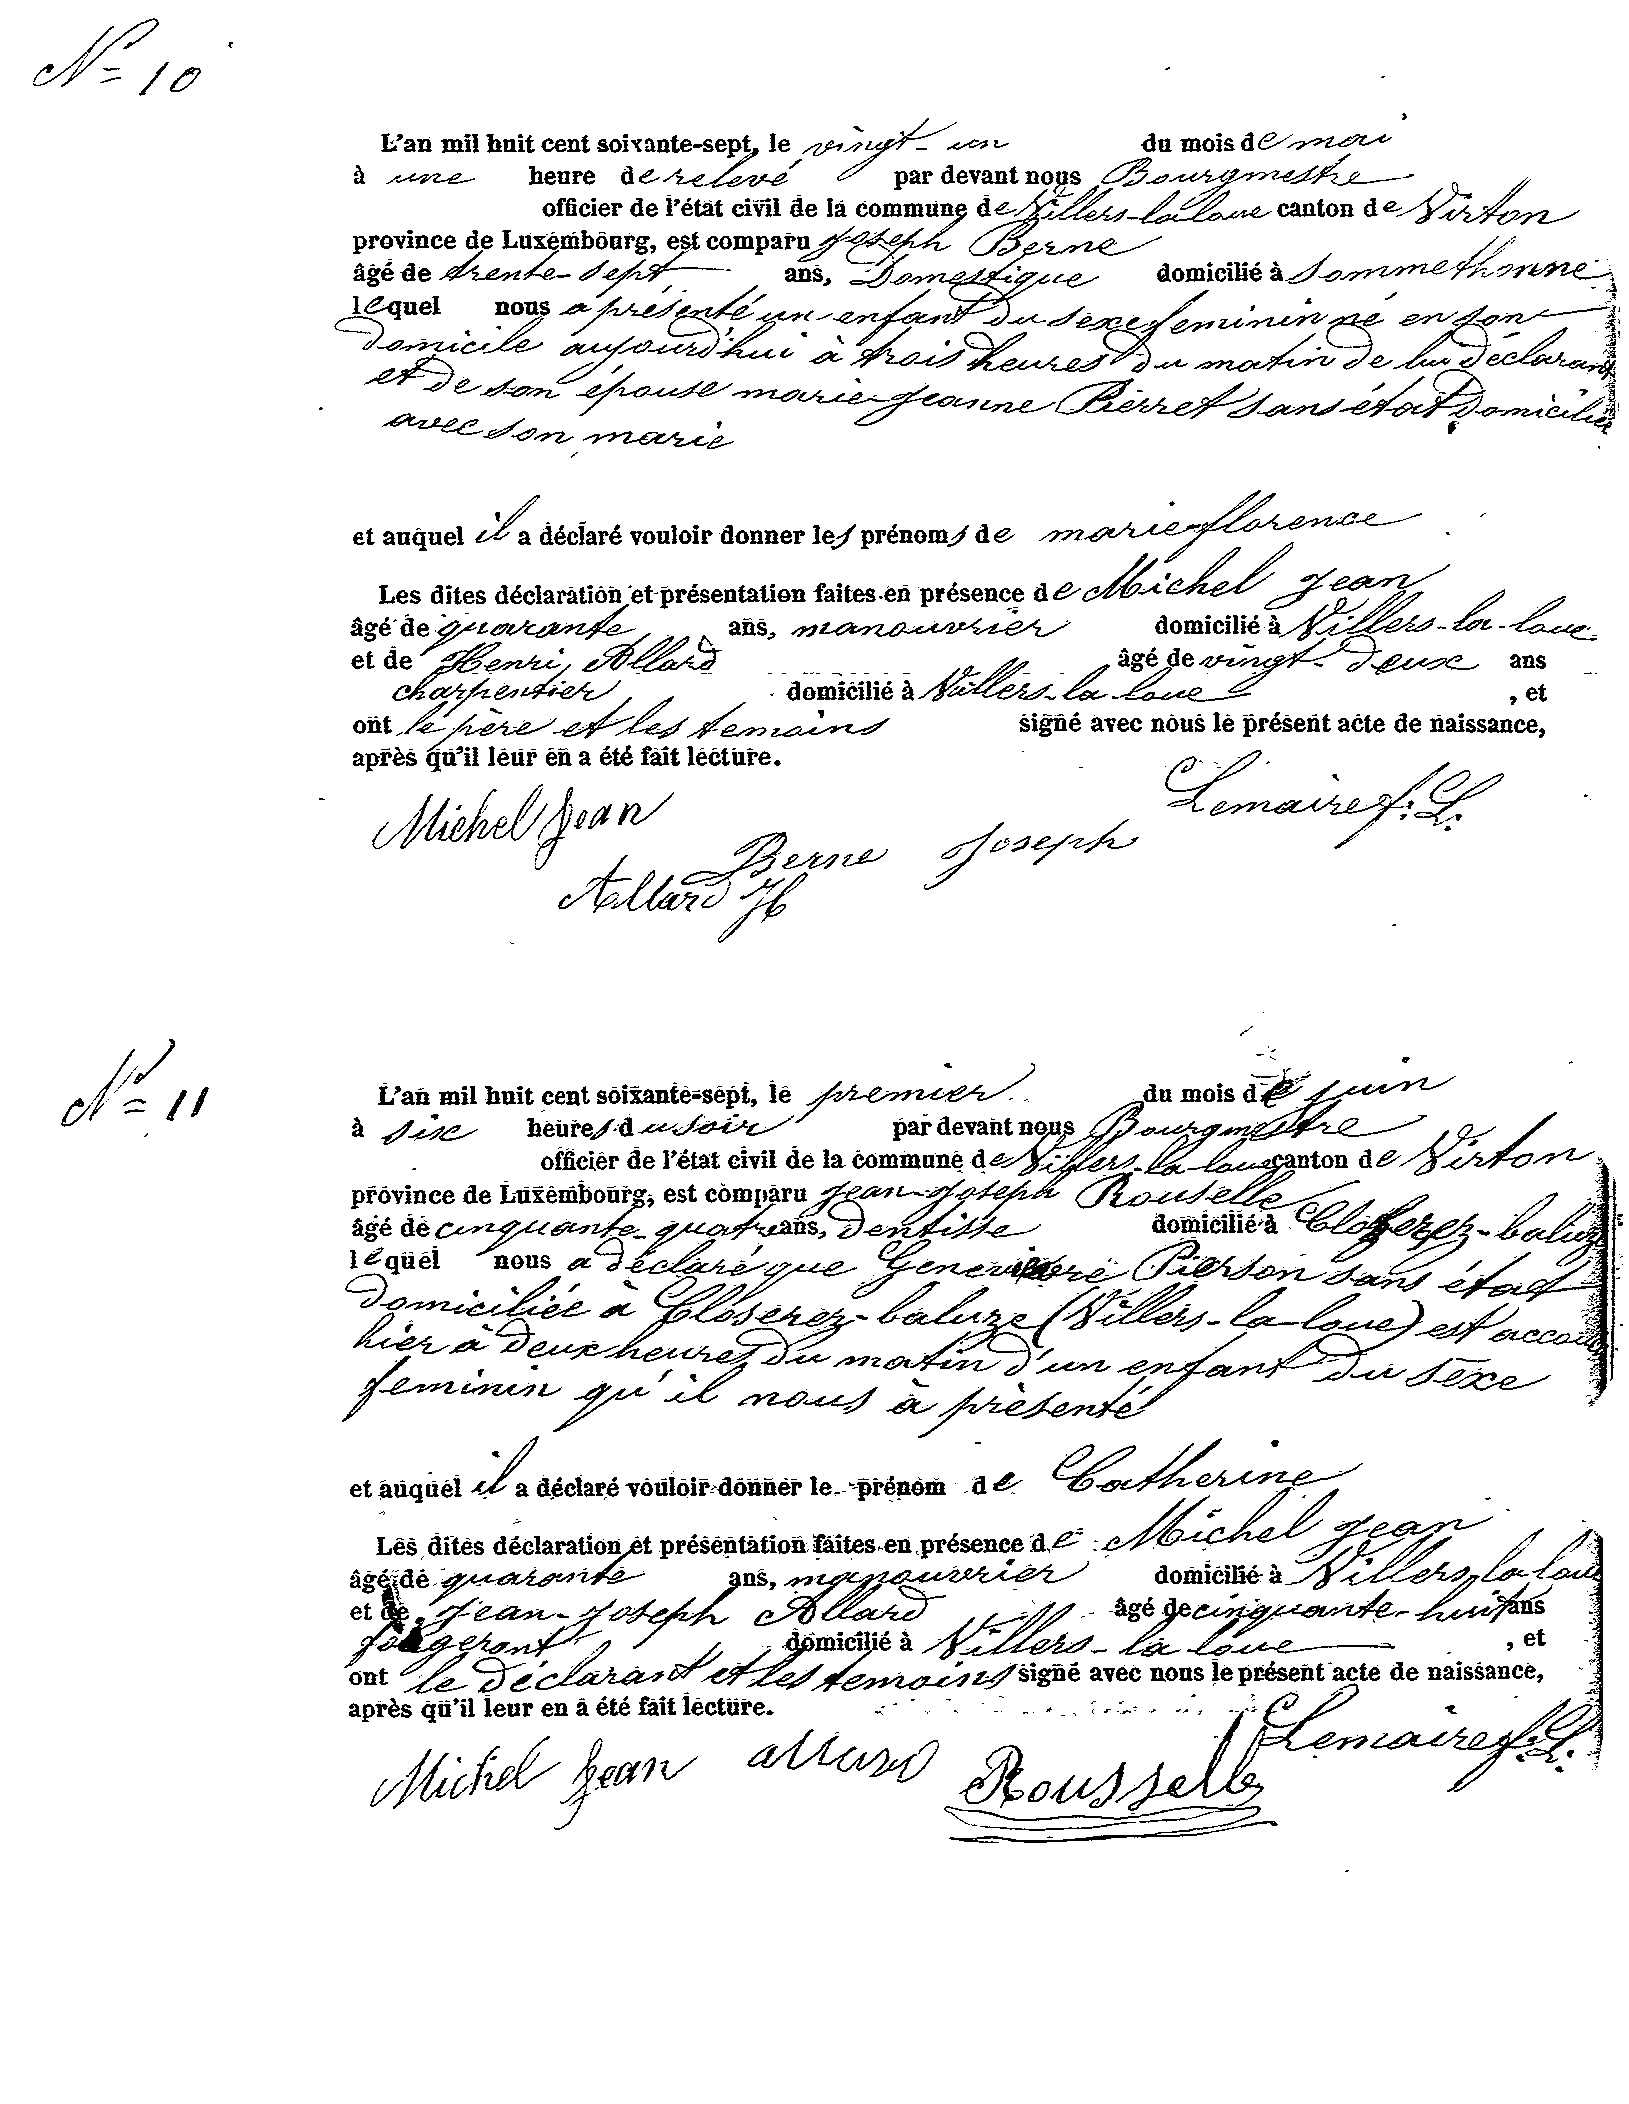 N= 10
L'an mil huit cent soixante-sept, le vingt-un du mois de mai
à une heure de relevé par devant nous Bourgmestre
officier de l'état civil de la commune de Villers-la-loue canton de Virton
province de Luxembourg, est comparu Joseph Berne
âgé de trente-sept ans, Domestique domicilié à Sommethonne
lequel nous a présenté un enfant du sexe feminin né en son
domicile aujourd'hui à trois heures du matin de lui déclarant
et de son épouse marie-Jeanne Pierret sans état domicilié
avec son marie
et auquel il a déclaré vouloir donner les prénoms de marie-florence
Les dites déclaration et présentation faites en présence de Michel Jean
âgé de quarante ans, manouvrier domicilié à Villers-la-loue
et de Henri Allard âgé de vingt-deux ans
charpentier domicilié à Villers-la loue, et
ont le père et les temoins signé avec nous le présent acte de naissance,
après qu'il leur en a été fait lecture.
Lemaire f. L.
Michel Jean
Berne Joseph
Allard H
N= 11
L'an mil huit cent soixante-sept, le premier du mois de juin
à six heures du soir par devant nous Bourgmestre
officier de l'état civil de la commune de Villers-la-loue canton de Virton
province de Luxembourg, est comparu Jean-Joseph Rouselle
âgé de cinquante-quatre ans, dentiste domicilié à Closerez-baluze
lequel nous a déclaré que Genevieve Pierson sans état
domiciliée à Closerez-baluze (Villers-la-loue) est accou
hier à deux heures du matin d'un enfant du sexe
feminin qu'il nous à présenté
et auquel il a déclaré vouloir donner le prénom de Catherine
Les dites déclaration et présentation faites en présence de Michel Jean
âgé de quarante ans, manouvrier domicilié à Villers-la-loue
et de Jean-Joseph Allard âgé de cinquante-huit ans
forgeront domicilié à Villers-la loue, et
ont le déclarant et les temoins signé avec nous le présent acte de naissance,
après qu'il leur en a été fait lecture.
Lemaire f. L.
Michel Jean allard Rousselle